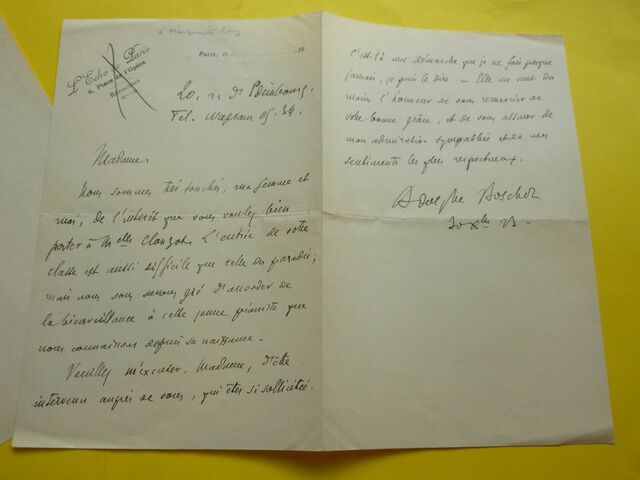 à Marguerite Long
L'Echo de Paris
6, Place de l'Opéra
Paris, le 19
20, r. de Pétersbourg.
Tel. Wagram 05.34.
Madame,
Nous sommes très touchés, ma femme et
moi, de l'intérêt que vous voulez bien
porter à Melle Clouzot. L'entrée de votre
classe est aussi difficile que celle du paradis;
mais nous vous savons gré d'accorder de
la bienveillance à cette jeune pianiste que
nous connaissons depuis sa naissance.
Veuillez m'excuser, Madame, d'être
intervenu auprès de vous, qui êtes si sollicitée.
C'est là une démarche que je ne fais presque
jamais, je puis le dire — Elle me vaut du
moins l'honneur de vous remercier de
votre bonne grâce, et de vous assurer de
mon admiration sympathie et de mes
sentiments les plus respectueux.
Adolphe Boschot
30 Xbre 23 -